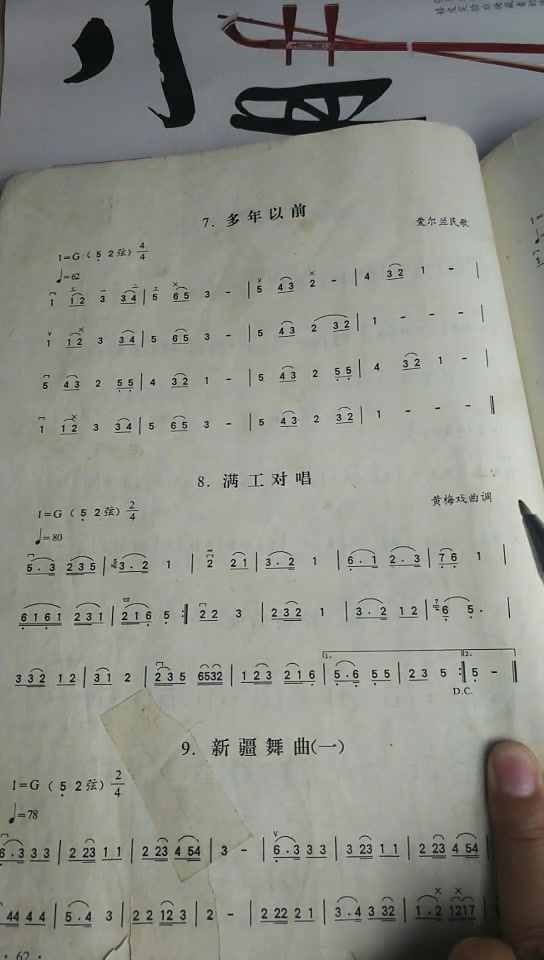 7. 多年以前
爱尔兰民歌
1=G（5 2弦）4/4
♩=62
1 12 3 34 | 5 65 3 - | 5 43 2 - | 4 32 1 - |
1 12 3 34 | 5 65 3 - | 5 43 2 32 | 1 - - - |
5 43 2 55 | 4 32 1 - | 5 43 2 55 | 4 32 1 - |
1 12 3 34 | 5 65 3 - | 5 43 2 32 | 1 - - - ‖
8. 满工对唱
黄梅戏曲调
1=G（5 2弦）2/4
♩=80
5.3 235 | 3.2 1 | 2 21 | 3.2 1 | 6.1 2.3 | 76 1 |
6161 231 | 216 5 :‖ 22 3 | 232 1 | 3.2 12 | 6 5. |
332 12 | 31 2 | 235 6532 | 123 216 | 1. 5.6 55 | 23 5 :‖ 2. 5 - ‖
D.C.
9. 新疆舞曲(一)
1=G（5 2弦）2/4
♩=78
6.3 33 | 223 11 | 223 454 | 3 - | 6.3 33 | 323 11 | 223 454
44 44 | 5.4 3 | 22 123 | 2 - | 222 21 | 3.4 332 | 1.2 1217 |
· 62 ·